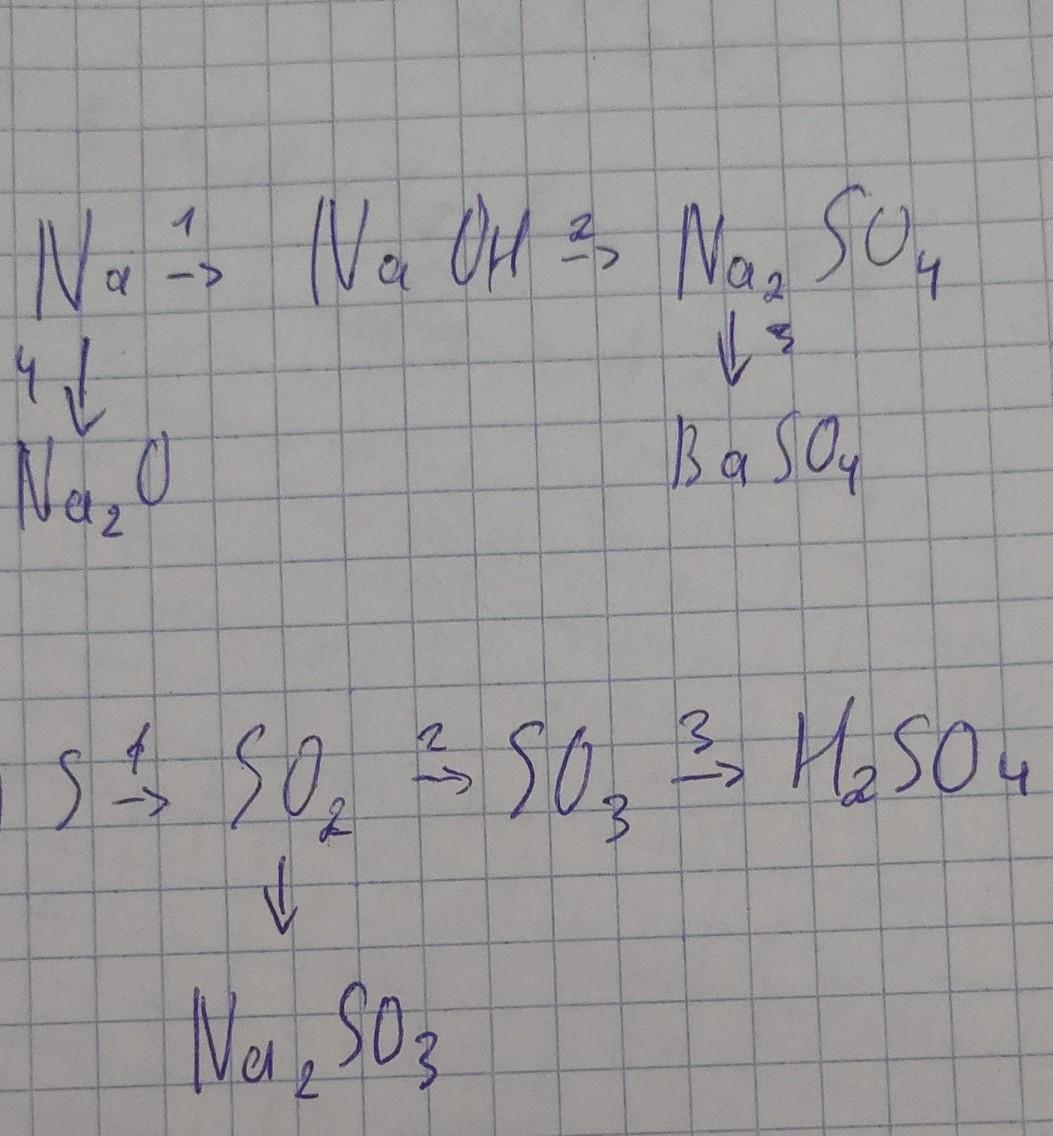 Na 1→ NaOH 2→ Na₂SO₄
4↓ ↓3
Na₂O BaSO₄
S 1→ SO₂ 2→ SO₃ 3→ H₂SO₄
↓
Na₂SO₃